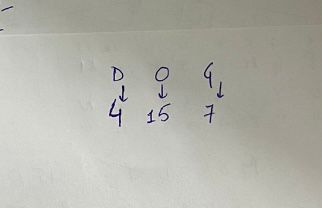 D O G
↓ ↓ ↓
4 15 7